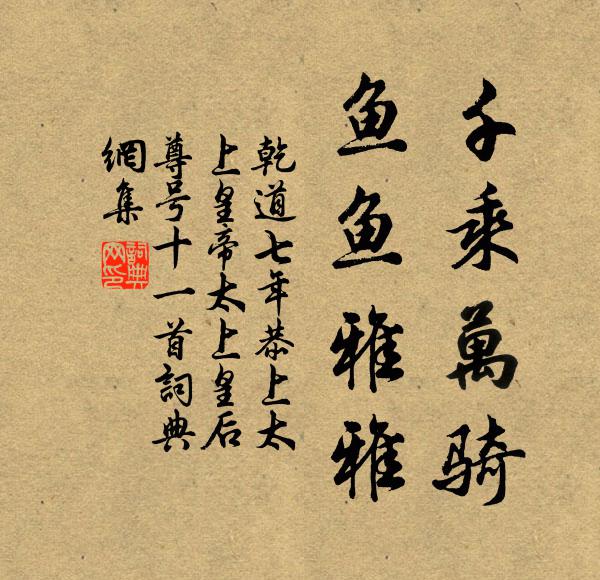 千乘萬骑
鱼鱼雅雅
乾道七年恭上太
上皇帝太上皇后
尊号十一首詞典
網集
詞典网印